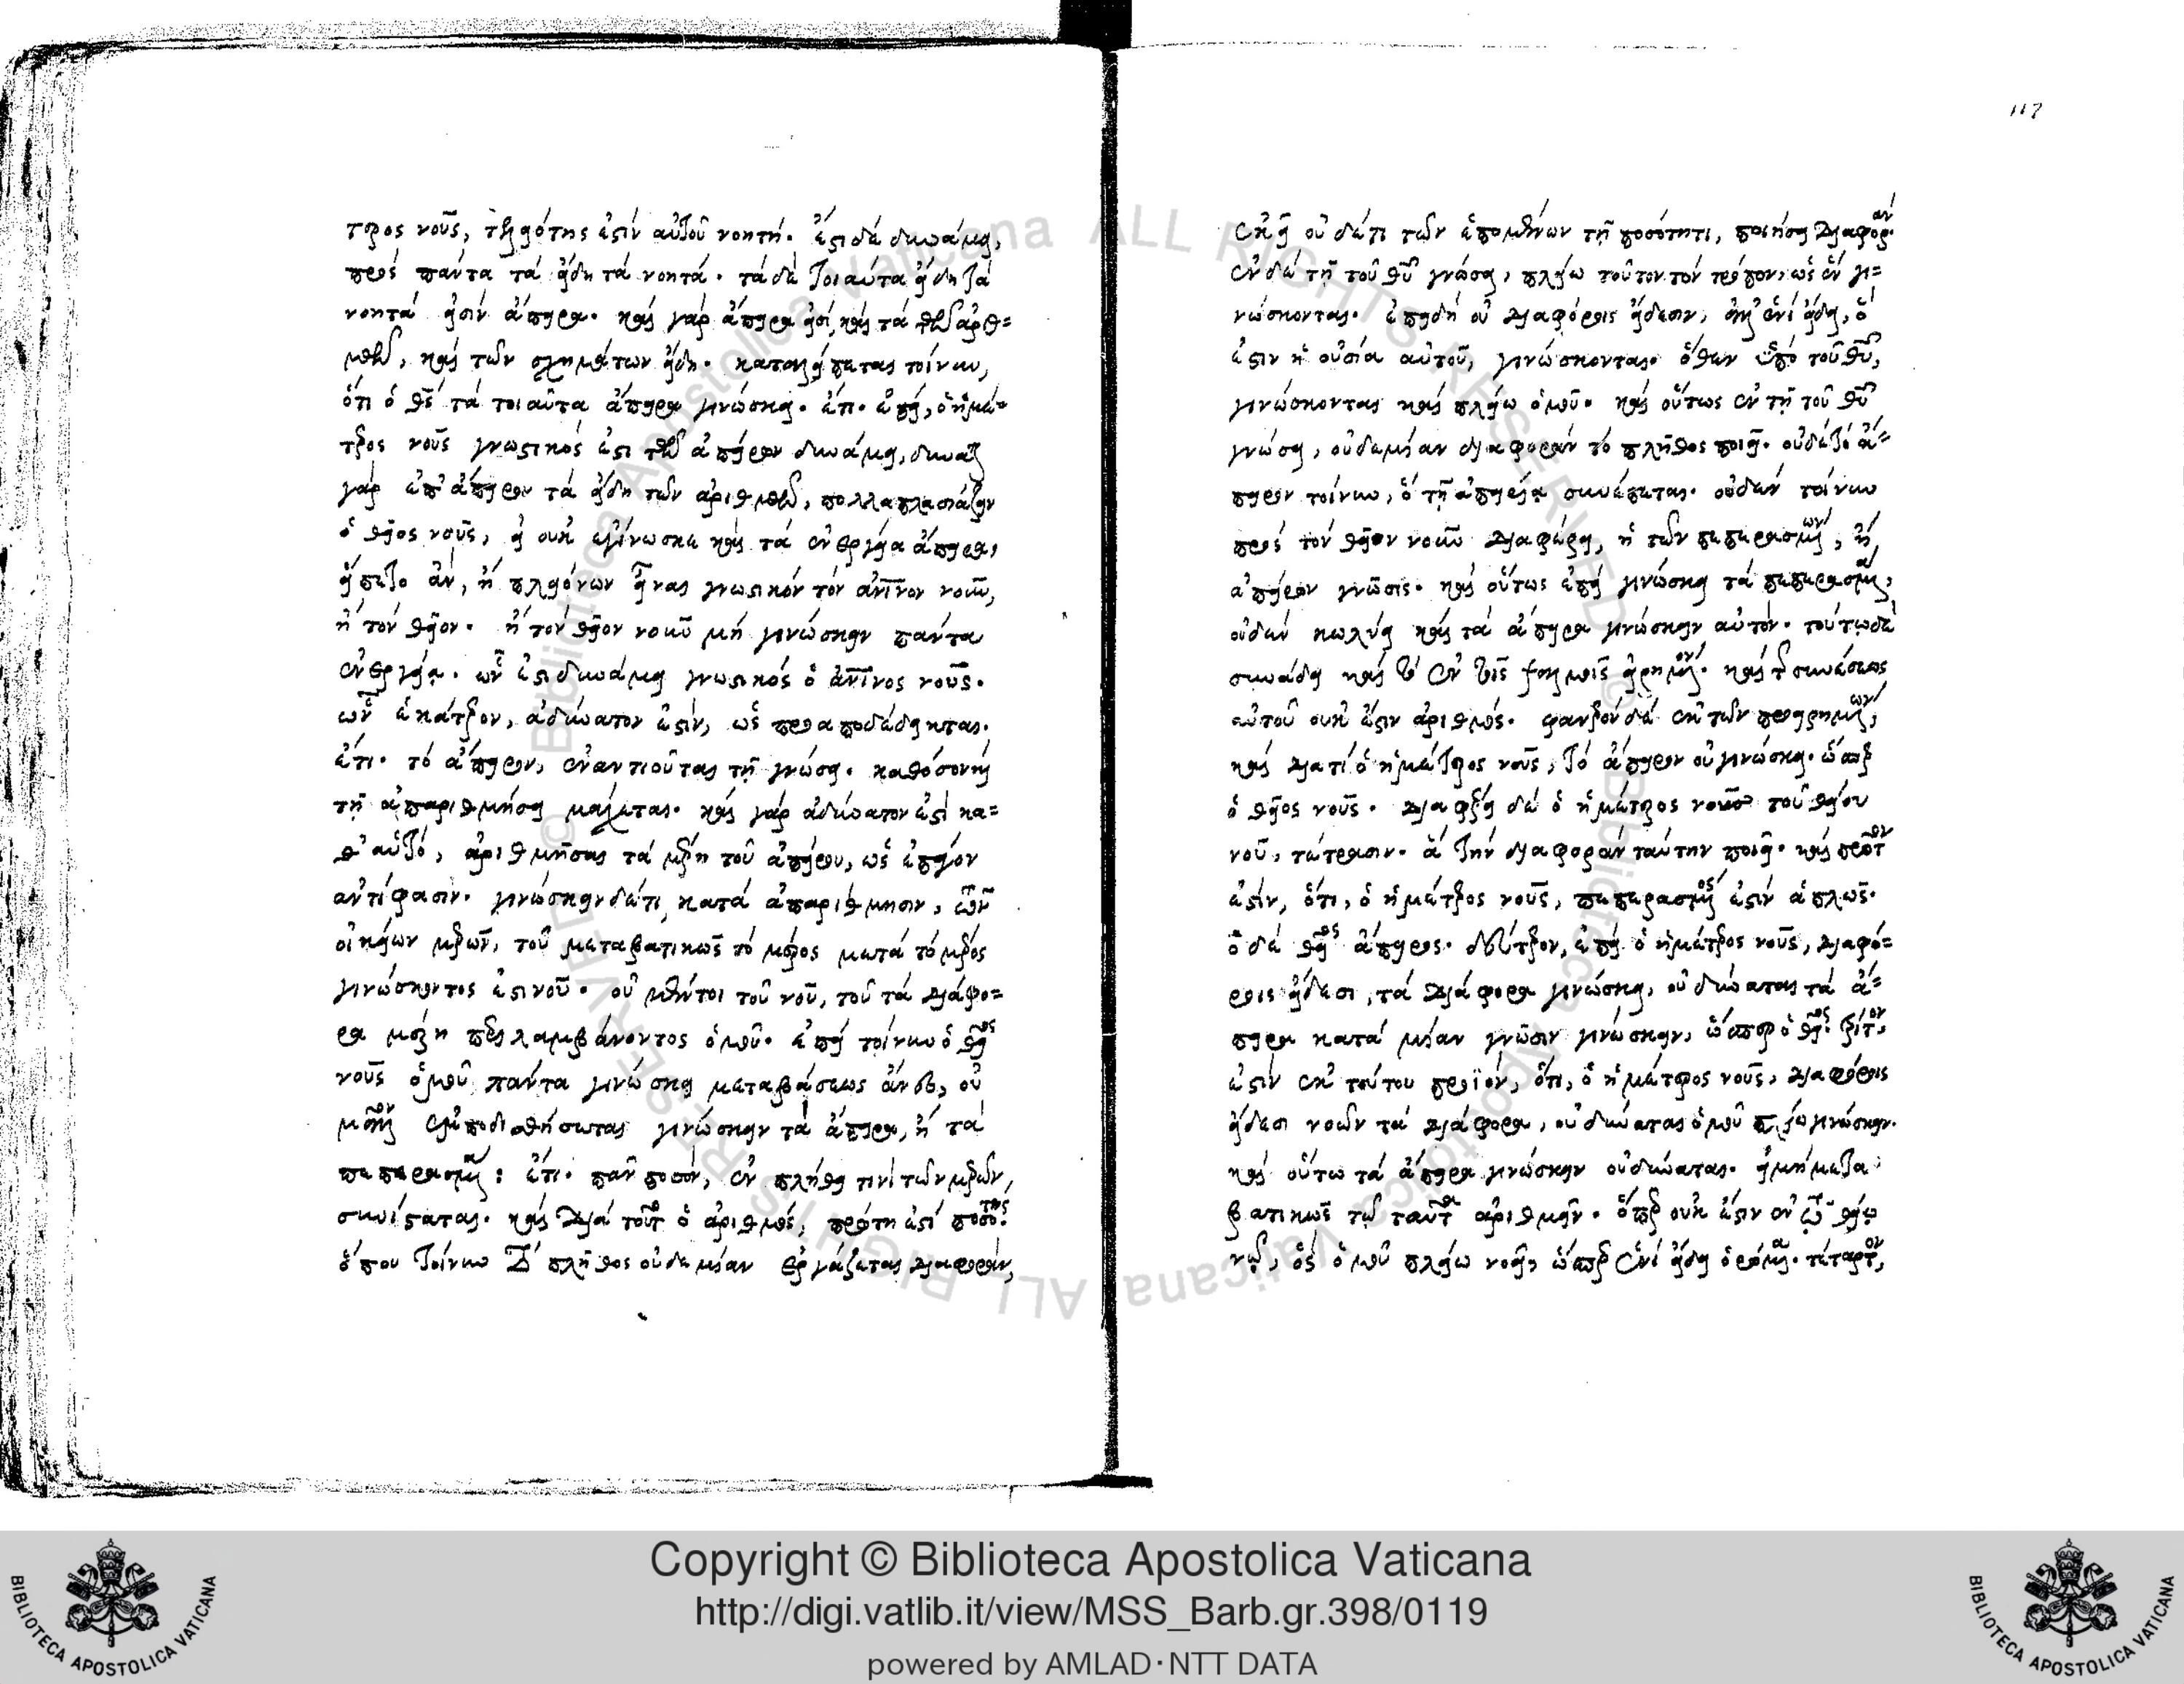 τερος νοῦς, τελειότης ἐστὶν αὐτοῦ νοητή. ἔστι δὲ δυνάμει,
πρὸς πάντα τὰ εἴδη τὰ νοητά. τὰ δὲ τοιαῦτα εἴδη τὰ
νοητὰ εἰσὶν ἄπειρα. καὶ γὰρ ἄπειρα εἰσὶ, καὶ τὰ τῶν ἀριθ=
μῶν, καὶ τῶν σχημάτων εἴδη. καταλείπεται τοίνυν,
ὅτι ὁ θς τὰ τοιαῦτα ἄπειρα γινώσκει. ἔτι. ἐπεὶ, ὁ ἡμέ=
τερος νοῦς γνωστικός ἐστι τῶν ἀπείρων δυνάμει, δύναται
γὰρ ἐπ' ἄπειρον τὰ εἴδη τῶν ἀριθμῶν, πολλαπλασιάζειν
ὁ θεῖος νοῦς, εἰ οὐκ ἐγίνωσκε καὶ τὰ ἐνεργείᾳ ἄπειρα,
εἵπετο ἂν, ἢ πλειόνων εἶναι γνωστικὸν τὸν ἀνινον νοῦν,
ἢ τὸν θεῖον. ἢ τὸν θεῖον νοῦν μὴ γινώσκειν πάντα
ἐνεργείᾳ. ὧν ἐστι δυνάμει γνωστικὸς ὁ ἀνινος νοῦς.
ὧν ἑκάτερον, ἀδύνατον ἐστὶν, ὡς προαποδέδεικται.
ἔτι. τὸ ἄπειρον, ἐναντιοῦται τῇ γνώσει. καθόσον καὶ
τῇ ἀπαριθμήσει μάχεται. καὶ γὰρ ἀδύνατον ἐστὶ κα=
θ' αὑτὸ, ἀριθμῆσαι τὰ μέρη τοῦ ἀπείρου, ὡς ἐπιὸν
ἀντίφασιν. γινώσκειν δέ τι κατὰ ἀπαρίθμησιν, τῶν
οἰκείων μερῶν, τοῦ μεταβατικῶς τὸ μέρος μετὰ τὸ μέρος
γινώσκοντος ἐστὶ νοῦ. οὐ μέντοι τοῦ νοῦ, τοῦ τὰ διάφο=
ρα μέρη περιλαμβάνοντος ὁμοῦ. ἐπεὶ τοίνυν ὁ θεῖος
νοῦς ὁμοῦ πάντα γινώσκει μεταβάσεως ἄνευ, οὐ
μᾶλλον ἐμποδισθήσεται γινώσκειν τὰ ἄπειρα, ἢ τὰ
πεπερασμένα: ἔτι. πᾶν ποσὸν, ἐν πλήθει τινὶ τῶν μερῶν,
συνίσταται. καὶ διὰ τοῦτο ὁ ἀριθμὸς, πρώτη ἐστὶ ποσότης.
ὅπου τοίνυν τὸ πλῆθος οὐδεμίαν ἐργάζεται διαφορὰν,
117
ἐκεῖ οὐδέ τι τῶν ἑπομένων τῇ ποσότητι, ποιήσει διαφοράν.
ἐν δὲ τῇ τοῦ θυ γνώσει, πλείω τοῦτον τὸν τρόπον, ὡς ἓν γι=
νώσκονται. ἐπειδὴ οὐ διαφόροις εἴδεσιν, ἀλλ' ἑνὶ εἴδει, ὅ
ἐστιν ἡ οὐσία αὐτοῦ, γινώσκονται. ὅθεν ὑπὸ τοῦ θυ,
γινώσκονται καὶ πλείω ὁμοῦ. καὶ οὕτως ἐν τῇ τοῦ θυ
γνώσει, οὐδεμίαν διαφορὰν τὸ πλῆθος ποιεῖ. οὐδὲ τὸ ἄ=
πειρον τοίνυν, ὃ τῇ ἀπειρίᾳ συνέπεται. οὐδὲν τοίνυν
πρὸς τὸν θεῖον νοῦν διαφέρει, ἡ τῶν πεπερασμένων, ἢ
ἀπείρων γνῶσις. καὶ οὕτως ἐπεὶ γινώσκει τὰ πεπερασμένα,
οὐδὲν κωλύει καὶ τὰ ἄπειρα γινώσκειν αὐτόν. τούτῳ δὲ
συνάδει καὶ τὸ ἐν τοῖς ψαλμοῖς εἰρημένον. καὶ τῆς συνέσεως
αὐτοῦ οὐκ ἔστιν ἀριθμός. φανερὸν δὲ ἐκ τῶν προειρημένων,
καὶ διατί ὁ ἡμέτερος νοῦς, τὸ ἄπειρον οὐ γινώσκει. ὥσπερ
ὁ θεῖος νοῦς. διαφέρει δὲ ὁ ἡμέτερος νοῦς τοῦ θείου
νοῦ, τέτρασιν. ἃ τὴν διαφορὰν ταύτην ποιεῖ. καὶ πρῶτον
ἐστὶν, ὅτι, ὁ ἡμέτερος νοῦς, πεπερασμένος ἐστὶν ἁπλῶς.
ὁ δὲ θεῖος ἄπειρος. δεύτερον, ἐπεὶ ὁ ἡμέτερος νοῦς, διαφό=
ροις εἴδεσι, τὰ διάφορα γινώσκει, οὐ δύναται τὰ ἄ=
πειρα κατὰ μίαν γνῶσιν γινώσκειν, ὥσπερ ὁ θεῖος. τρίτον,
ἐστὶν ἐκ τούτου προϊὸν, ὅτι, ὁ ἡμέτερος νοῦς, διαφόροις
εἴδεσι νοῶν τὰ διάφορα, οὐ δύναται ὁμοῦ πλείω γινώσκειν.
καὶ οὕτω τὰ ἄπειρα γινώσκειν οὐ δύναται. εἰ μὴ μετα
βατικῶς τῷ ταῦτα ἀριθμεῖν. ὅπερ οὐκ ἔστιν ἐν τῷ θείῳ
νῷ, ὃς ὁμοῦ πλείω νοεῖ, ὥσπερ ἑνὶ εἴδει ὁρώμενα. τέταρτον,
Copyright © Biblioteca Apostolica Vaticana
http://digi.vatlib.it/view/MSS_Barb.gr.398/0119
powered by AMLAD·NTT DATA